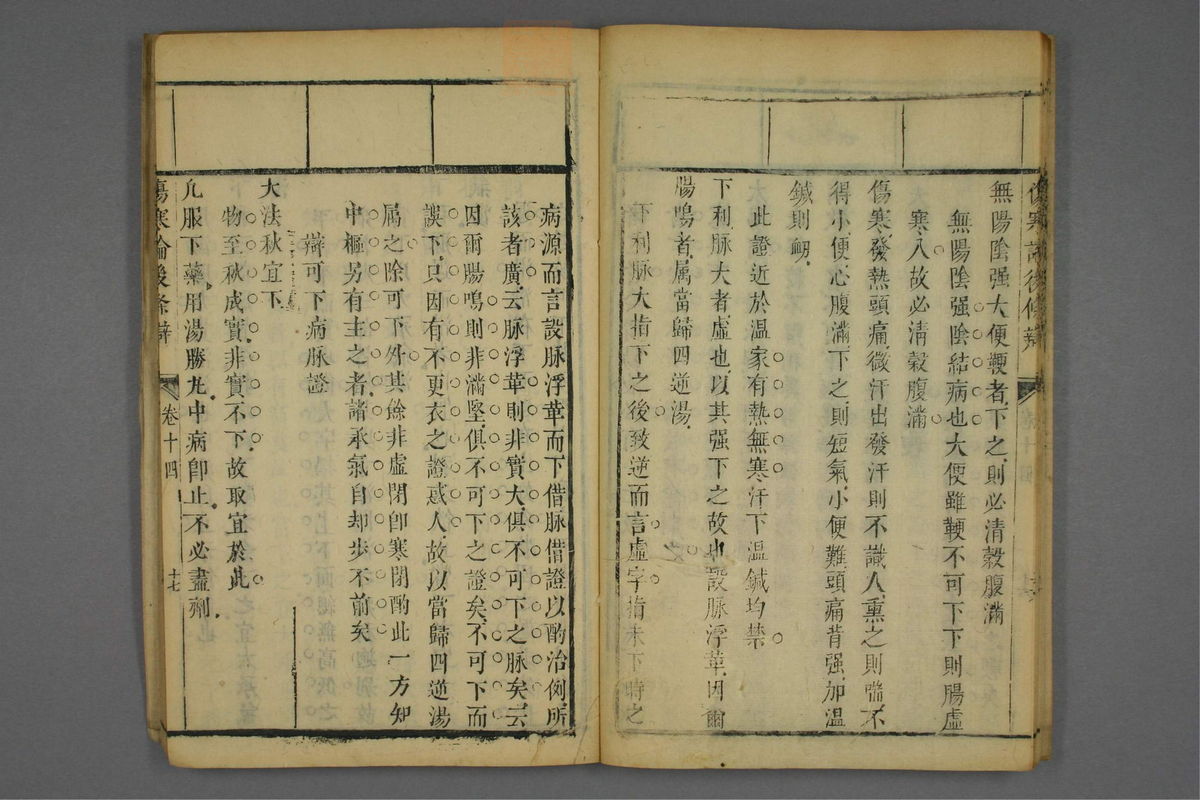 傷寒論後條辨
卷十四
無陽陰强大便鞕者下之則必清穀腹滿
無陽陰强陰結病也大便雖鞕不可下下則腸虛
大寒入故必清穀腹滿
傷寒發熱頭痛微汗出發汗則不識人熏之則喘不
得小便心腹滿下之則短氣小便難頭痛背强加温
鍼則衂
此證近於温家有熱無寒汗下温鍼均禁
下利脉大者虛也以其强下之故也設脉浮革因爾
腸鳴者属當歸四逆湯
下利脉大指下之後致逆而言虛字指未下時之
病源而言設脉浮革而下借脉借證以酌治例所
該者廣云脉浮革則非實大俱不可下之脉矣云
因爾腸鳴則非滿堅俱不可下之證矣不可下而
誤下只因有不更衣之證惑人故以當歸四逆湯
属之除可下外其餘非虛閉卽寒閉酌此一方知
中樞另有主之者諸承氣自却步不前矣
辯可下病脉證
大法秋宜下
物至秋成實非實不下故取宜於此
凣服下藥用湯勝丸中病卽止不必盡劑
傷寒論後條辨
卷十四
十七